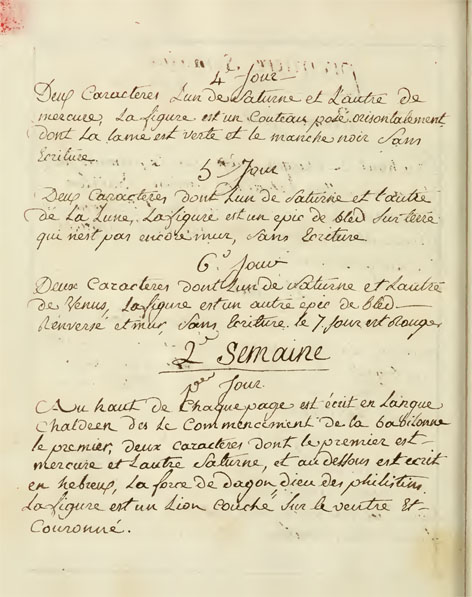 4.e Jour
Deux Caracteres Lun de Saturne et Lautre de
mercure, La figure est un Couteau posé orisontalement
dont La lame est verte et le manche noir Sans
Ecriture
5.e Jour
Deux Caracteres dont Lun de Saturne et l'autre
de La Lune, La figure est un epic de bled Sur terre
qui n'est pas encore mur, Sans Ecriture
6.e Jour
Deux Caracteres dont Lun de Saturne et Lautre
de Venus, La figure est un autre épic de bled
Renversé et mur, Sans Ecriture. le 7.e Jour est Rouge,
2.e Semaine
1.er Jour
Au haut de Chaque page est écrit en Langue
Chaldeen des Le Commencement de la babilonne
le premier, deux caracteres dont le premier est
mercure et Lautre Saturne, et au dessous est ecrit
en hebreux, La force de dagon dieu des philistins.
La figure est un Lion couché Sur le ventre Et
Couronné.